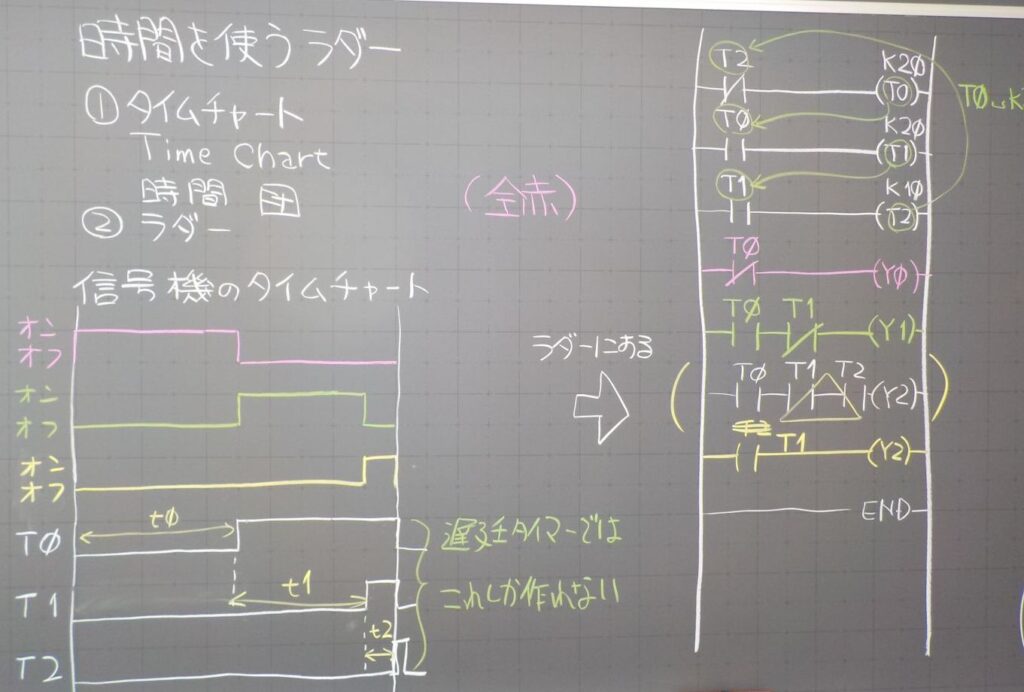 時間を使うラダー
① タイムチャート
Time Chart
時間
② ラダー
(全赤)
信号機のタイムチャート
オン
オフ
オン
オフ
オン
オフ
TØ
tØ
T1
t1
T2
t2
遅延タイマーでは
これしか作れない
ラダーにある
T2
K2Ø
(TØ)
TØ
K2Ø
(T1)
T1
K1Ø
(T2)
TØ
(YØ)
TØ T1
(Y1)
(TØ T1 T2 (Y2))
T1
(Y2)
END